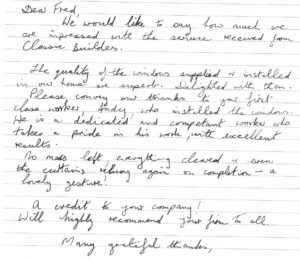 Dear Fred,
We would like to say how much we
are impressed with the service received from
Classic Builders.
The quality of the windows supplied & installed
in our home are superb. Delighted with them.
Please convey our thanks to your first
class worker, Andy who installed the windows.
He is a dedicated and competant worker who
takes a pride in his work, with excellent
results.
No mess left, everything cleared & even
the curtains rehung again on completion – a
lovely gesture!
A credit to your company!
Will highly recommend your firm to all.
Many grateful thanks,